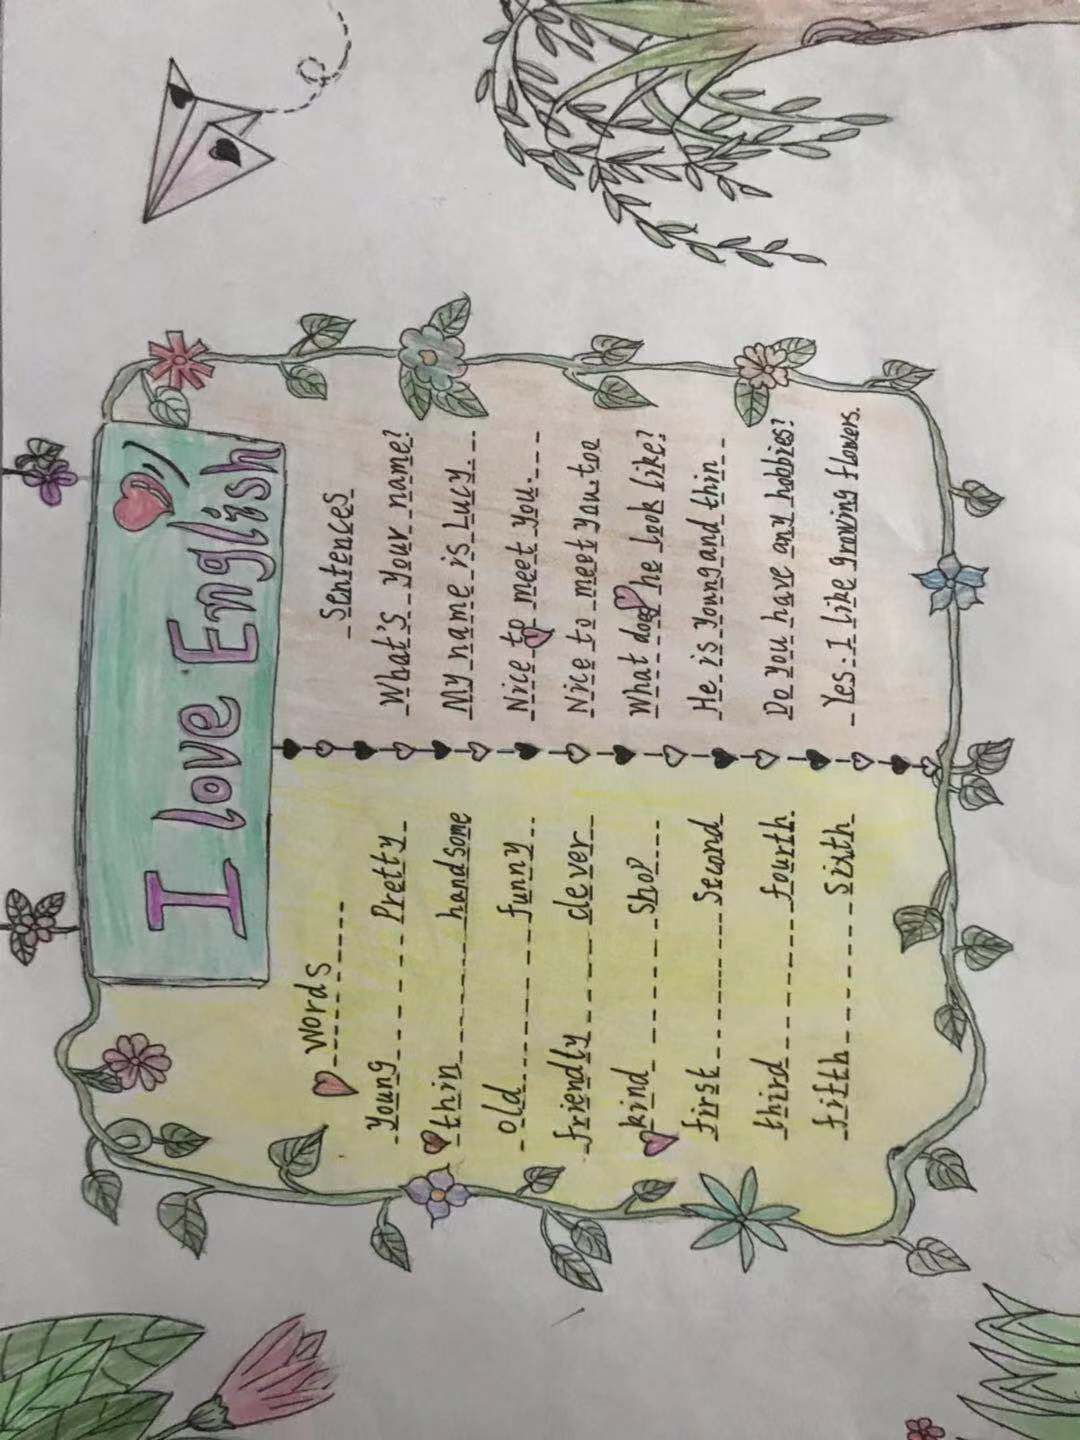 I love English
Words
Young Pretty
thin handsome
old funny
friendly clever
kind shop
first Second
third fourth
fifth Sixth
Sentences
What's your name?
My name is Lucy
Nice to meet you.
Nice to meet you too
What does he look like?
He is Young and thin
Do You have any hobbies?
Yes. I like growing flowers.